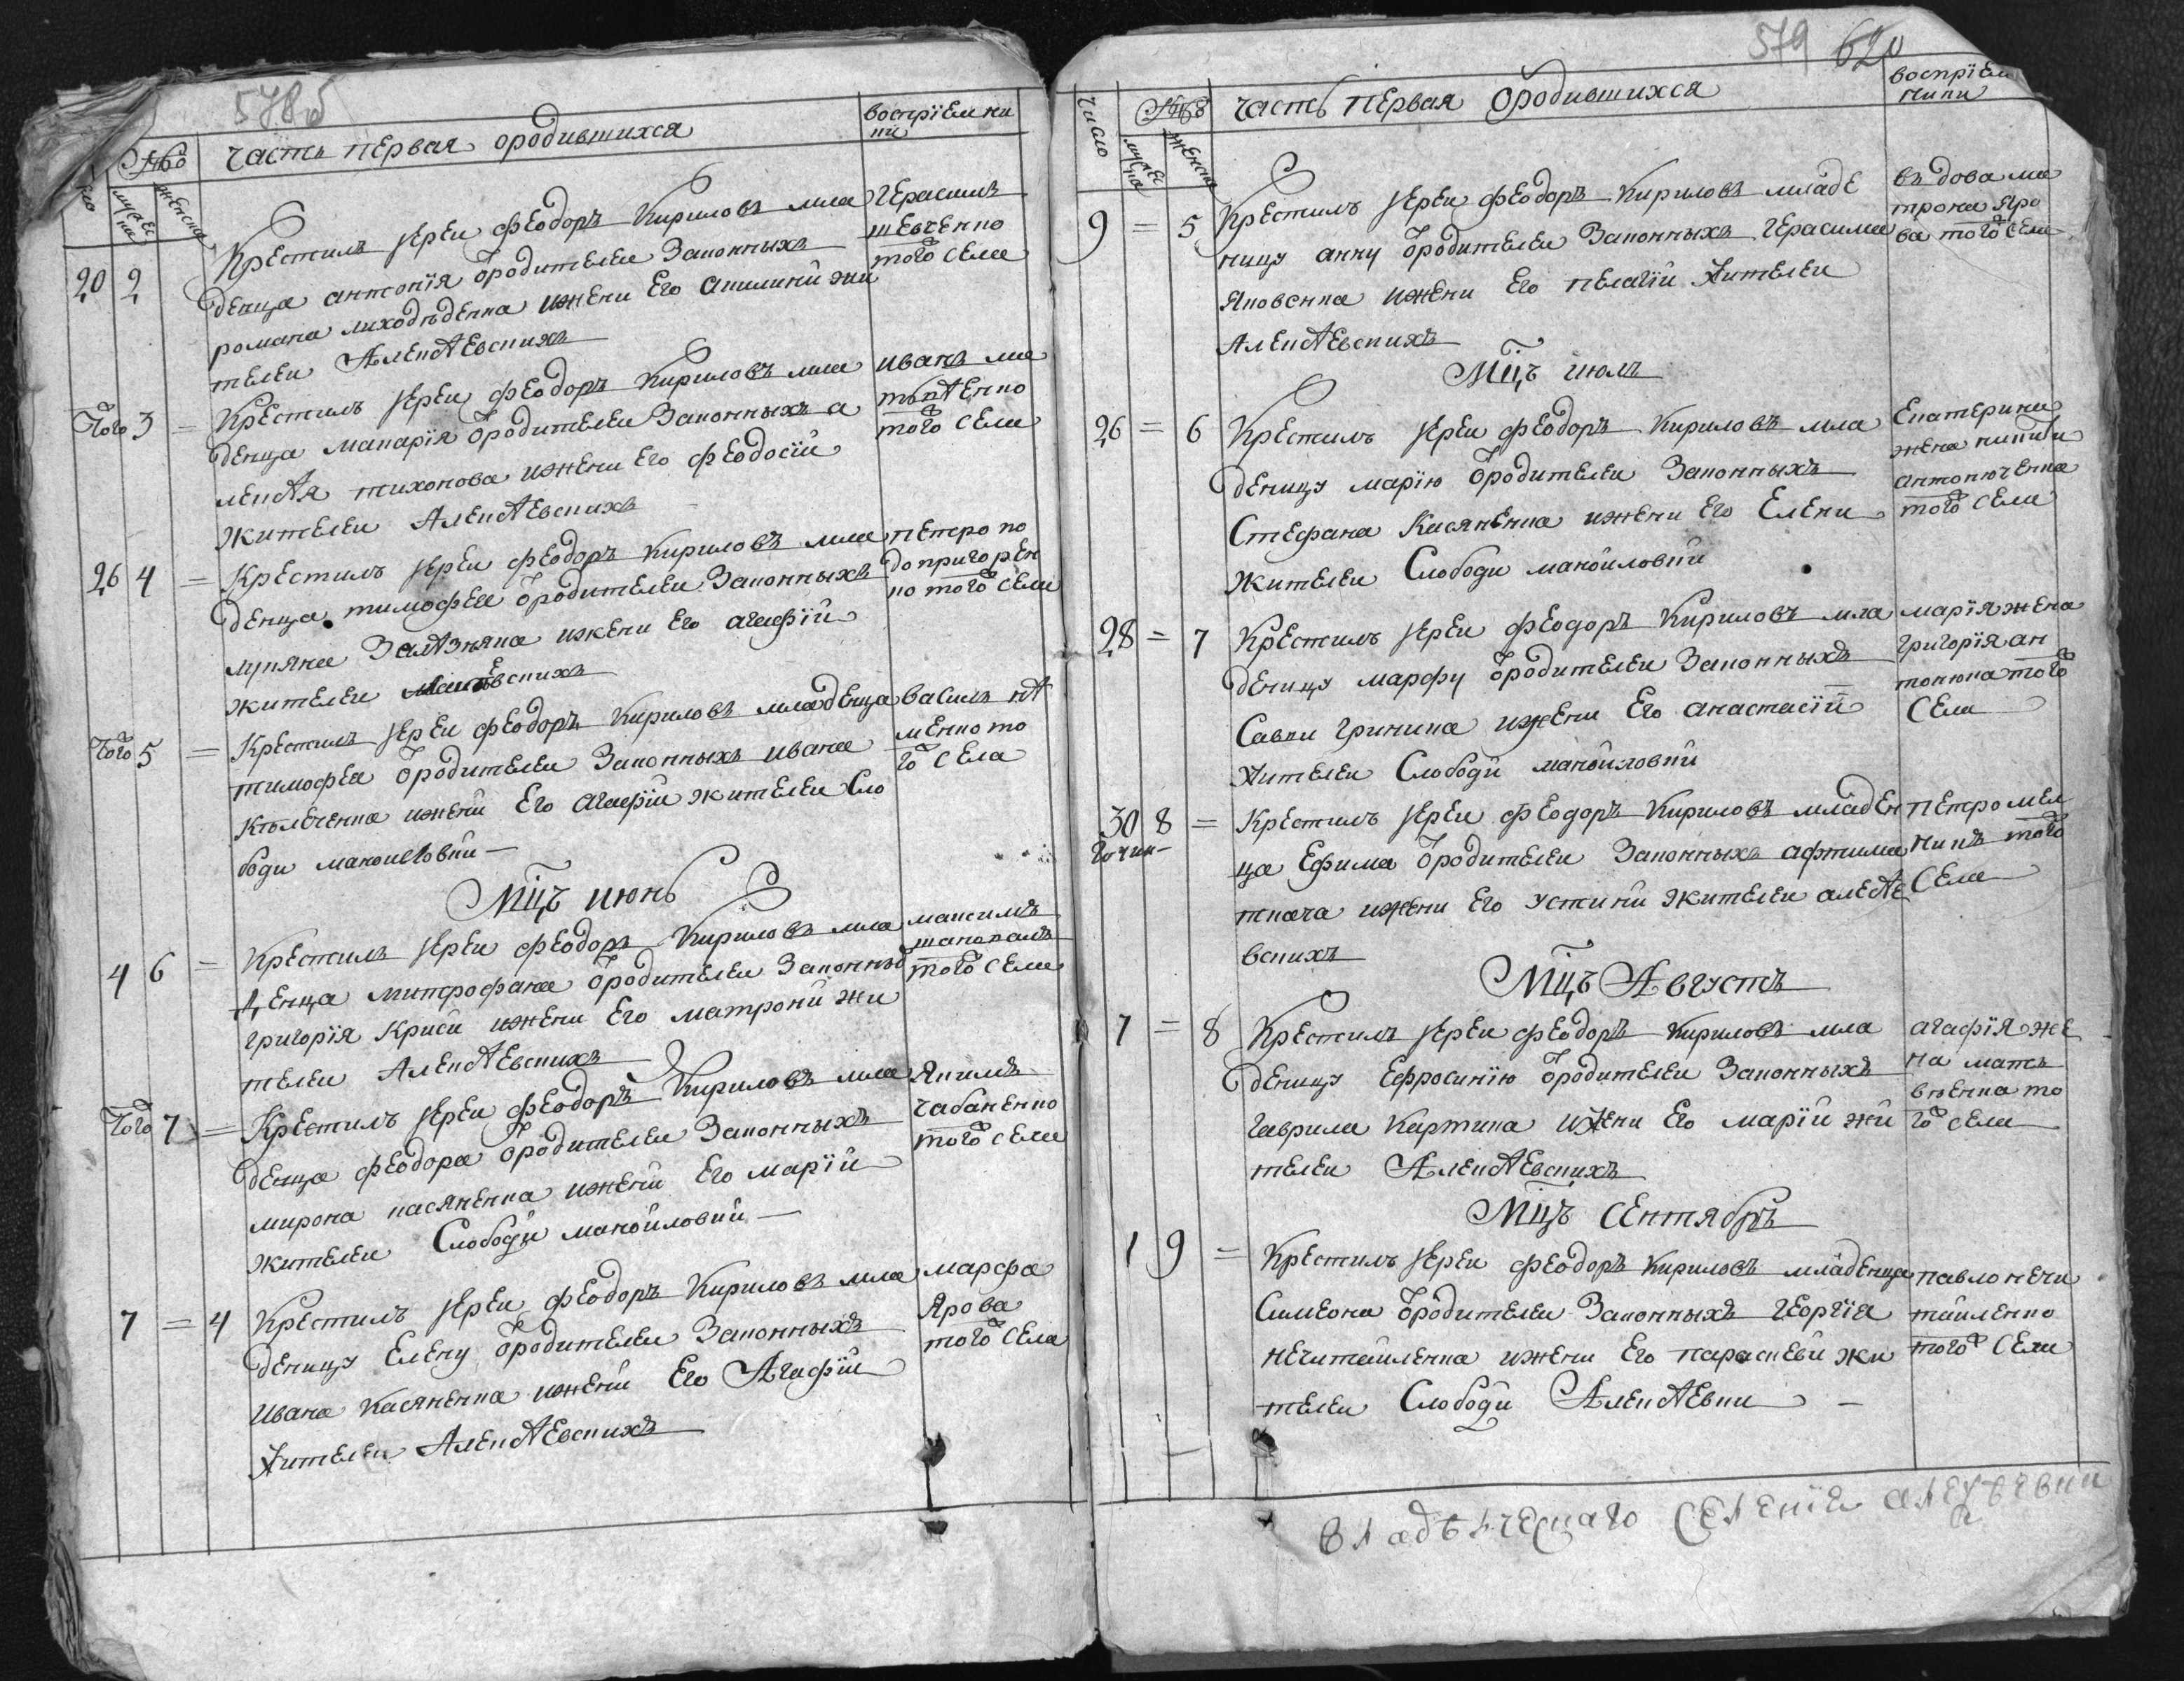 578б
Число
муже
ска
женска
часть первая ородившихся
восприемни
ки
20 2
Крестилъ иерей феодоръ кириловъ мла
денца антонїя ѿродителей законныхъ
романа лиходѣденка ижени его акилини жи
телей Алексѣевскихъ
Герасимъ
шевченко
того села
Того 3 =
Крестилъ иерей феодоръ кириловъ мла
денца макарїя ѿродителей законныхъ а
лексѣя тихонова ижени его феодосїй
жителей Алексѣевскихъ
иванъ ма
того села
26 4 =
Крестилъ иерей феодоръ кириловъ мла
денца тимофея ѿродителей законныхъ
лукяна Залѣзняка ижени его агафїи
жителей
петро по
допригорен
ко того села
Того 5 =
Крестилъ иерей феодоръ кириловъ младенца
тимофея ѿродителей законныхъ ивана
ижени его агафїи жителей Сло
боди маноиловки
василь
менко то
го села
Мцъ июнь
4 6 =
Крестилъ иерей феодоръ кириловъ мла
денца митрофана ѿродителей законныхъ
григорїя Криси ижени его матрони жи
телей Алексѣевскихъ
максимъ
шаповалъ
того села
Того 7 =
Крестилъ иерей феодоръ кириловъ мла
денца феодора ѿродителей законныхъ
мирона касяненка ижени его марїи
жителей Слободи маноиловки
Якимъ
чабаненко
того села
7 = 4
Крестилъ иерей феодоръ кириловъ мла
деницу Елену ѿродителей законныхъ
ивана касяненка ижени его Агафїи
жителей Алексѣевскихъ
марфа
Ярова
того села
579 620
число
муже
ска
женска
часть первая ѿродившихся
восприем
ники
9 = 5
Крестилъ иерей феодоръ кириловъ младе
ницу анну ѿродителей законныхъ герасима
яковенка ижени его пелагїи жителей
Алексѣевскихъ
вдова ма
трона яро
ва того села
Мцъ июль
26 = 6
Крестилъ иерей феодоръ кириловъ мла
деницу марїю ѿродителей законныхъ
Стефана Касяненка ижени его Елени
жителей Слободи маноиловки
Екатерина
жена никити
антонюченка
того села
28 = 7
Крестилъ иерей феодоръ кириловъ мла
деницу марфу ѿродителей законныхъ
Савки гриника ижени его анастасїи
жителей Слободи маноиловки
марїя жена
григорїя ан
тонюка того
села
30 8 =
Крестилъ иерей феодоръ кириловъ младен
ца Ефима ѿродителей законныхъ афтима
ткача ижени его устини жителей алексѣе
вскихъ
петро мел
никъ того
села
Мцъ Августъ
7 = 8
Крестилъ иерей феодоръ кириловъ мла
деницу ефросинїю ѿродителей законныхъ
гаврила Картика ижени его марїи жи
телей Алексѣевскихъ
агафїя же
на матв
ѣенка то
го села
Мцъ Сентябръ
1 9 =
Крестилъ иерей феодоръ кириловъ младенца
Симеона ѿродителей законныхъ георгїя
нечитайленка ижени его параскеви жи
телей Слободи Алексѣевки
павло нечи
тайленко
того села
владѣлческаго селенїя алексѣевки